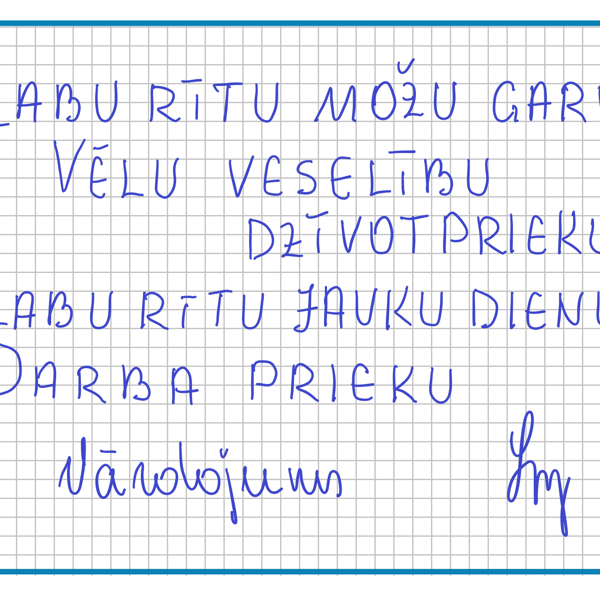 LABU RĪTU MOŽU GARU
VĒLU VESELĪBU
DZĪVOTPRIEKU
LABU RĪTU JAUKU DIENU
DARBA PRIEKU
Vārdojums